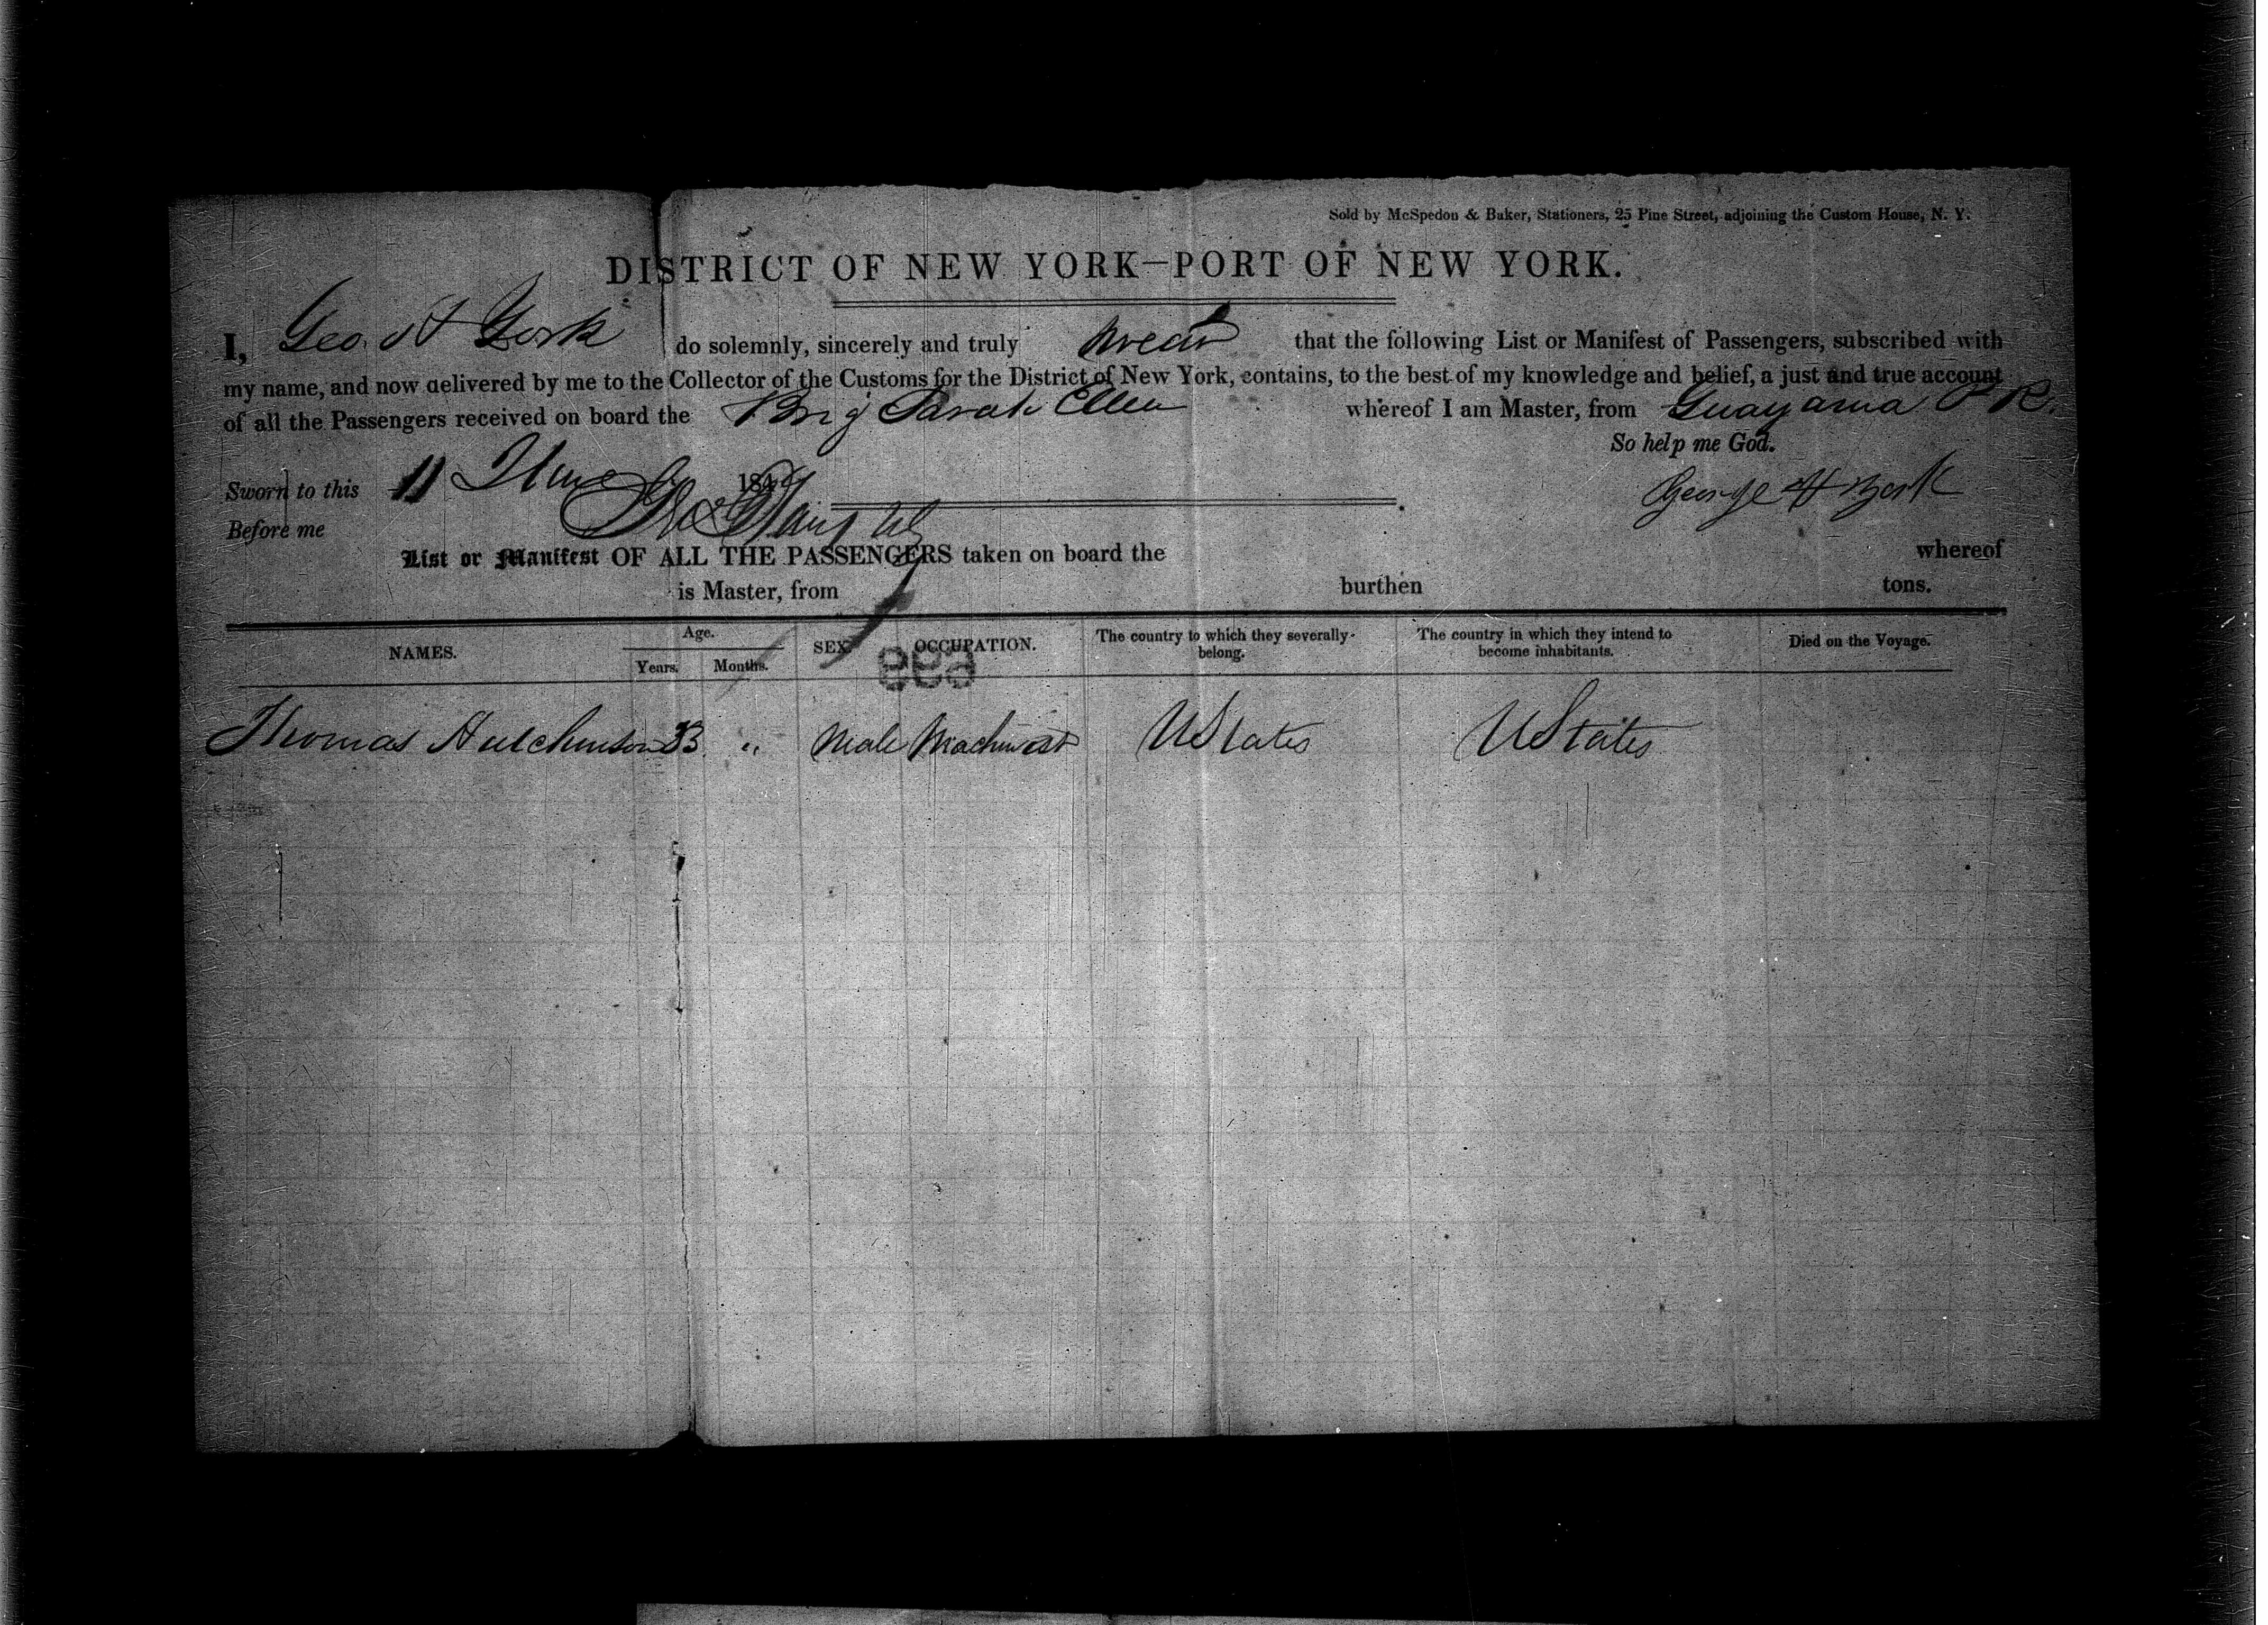 Sold by McSpedon & Baker, Stationers, 25 Pine Street, adjoining the Custom House, N. Y.
DISTRICT OF NEW YORK—PORT OF NEW YORK.
I, Geo. H York do solemnly, sincerely and truly swear that the following List or Manifest of Passengers, subscribed with
my name, and now delivered by me to the Collector of the Customs for the District of New York, contains, to the best of my knowledge and belief, a just and true account
of all the Passengers received on board the Brig Sarah Ellen whereof I am Master, from Guayama P R.
So help me God.
Sworn to this 11 June 184
George H York
Before me
List or Manifest OF ALL THE PASSENGERS taken on board the whereof
is Master, from burthen tons.
NAMES. Age. Years. Months. SEX OCCUPATION. The country to which they severally belong. The country in which they intend to become inhabitants. Died on the Voyage.
Thomas Hutchinson 33 " Male Machinist UStates UStates